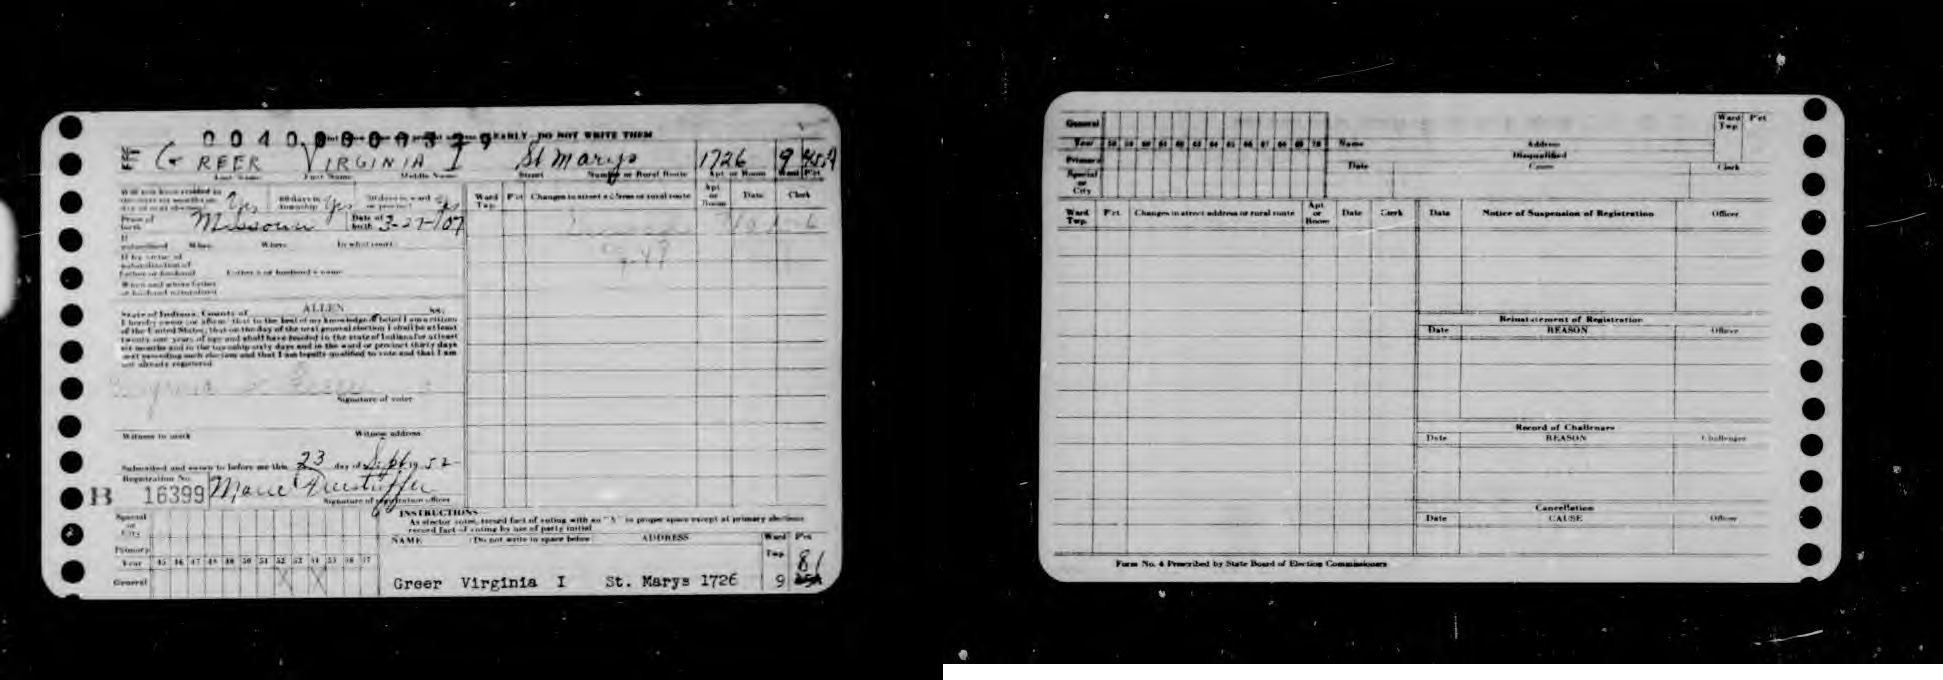 0040000379 EARLY DO NOT WRITE THEM
GREER VIRGINIA I St Marys 1726 9
Last Name First Name Middle Name Street Number or Rural Route Apt or Room Ward P'ct
Will you have resided in Yes 60 days in township Yes 30 days in ward or precinct Yes
Place of birth Missouri Date of birth 3-27-/07
If naturalized When Where In what court
If by virtue of naturalization of Father or husband Father's or husband's name
When and where father or husband naturalized
Ward Twp. P'ct Changes in street address or rural route Apt or Room Date Clerk
State of Indiana, County of ALLEN ss:
I hereby swear (or affirm) that to the best of my knowledge & belief I am a citizen
of the United States, that on the day of the next general election I shall be at least
twenty-one years of age and shall have resided in the state of Indiana for at least
six months and in the township sixty days and in the ward or precinct thirty days
next preceding such election and that I am legally qualified to vote and that I am
not already registered
Signature of voter
Witness to mark Witness address
Subscribed and sworn to before me this 23 day of Sept 19 52
Registration No.
B 16399 Marie
Signature of registration officer
INSTRUCTIONS
As elector votes, record fact of voting with an "X" in proper space except at primary elections
record fact of voting by use of party initial
NAME (Do not write in space below) ADDRESS Ward Twp. P'ct
Special or City
Primary
Year 45 46 47 48 49 50 51 52 53 54 55 56 57
General X X
81
Greer Virginia I St. Marys 1726 9
General
Year 58 59 60 61 62 63 64 65 66 67 68 69 70
Primary
Special or City
Name Address
Disqualified
Date Cause Clerk
Ward Twp. P'ct
Ward Twp. P'ct Changes in street address or rural route Apt or Room Date Clerk
Date Notice of Suspension of Registration Officer
Reinstatement of Registration
Date REASON Officer
Record of Challenges
Date REASON Challenger
Cancellation
Date CAUSE Officer
Form No. 4 Prescribed by State Board of Election Commissioners